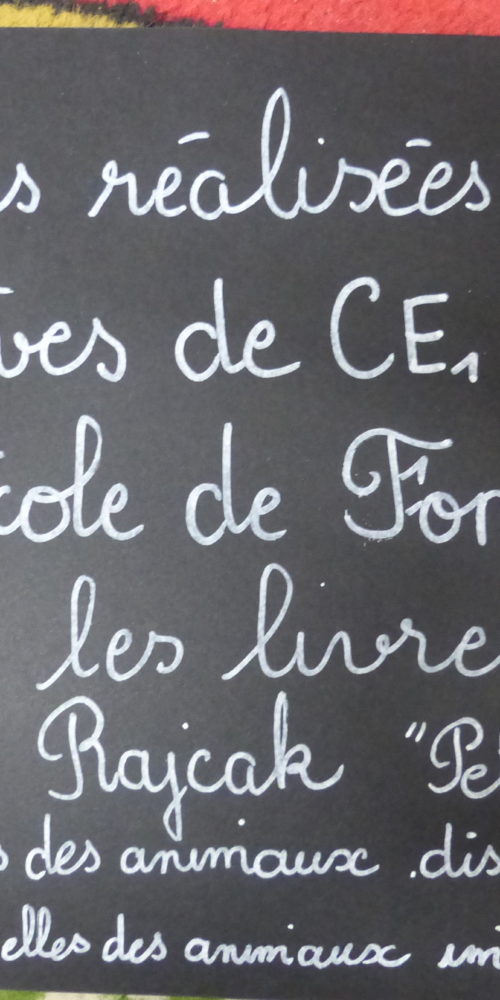 s réalisées
ves de CE1
cole de For
les livre
Rajcak "Pe
s des animaux dis
elles des animaux im